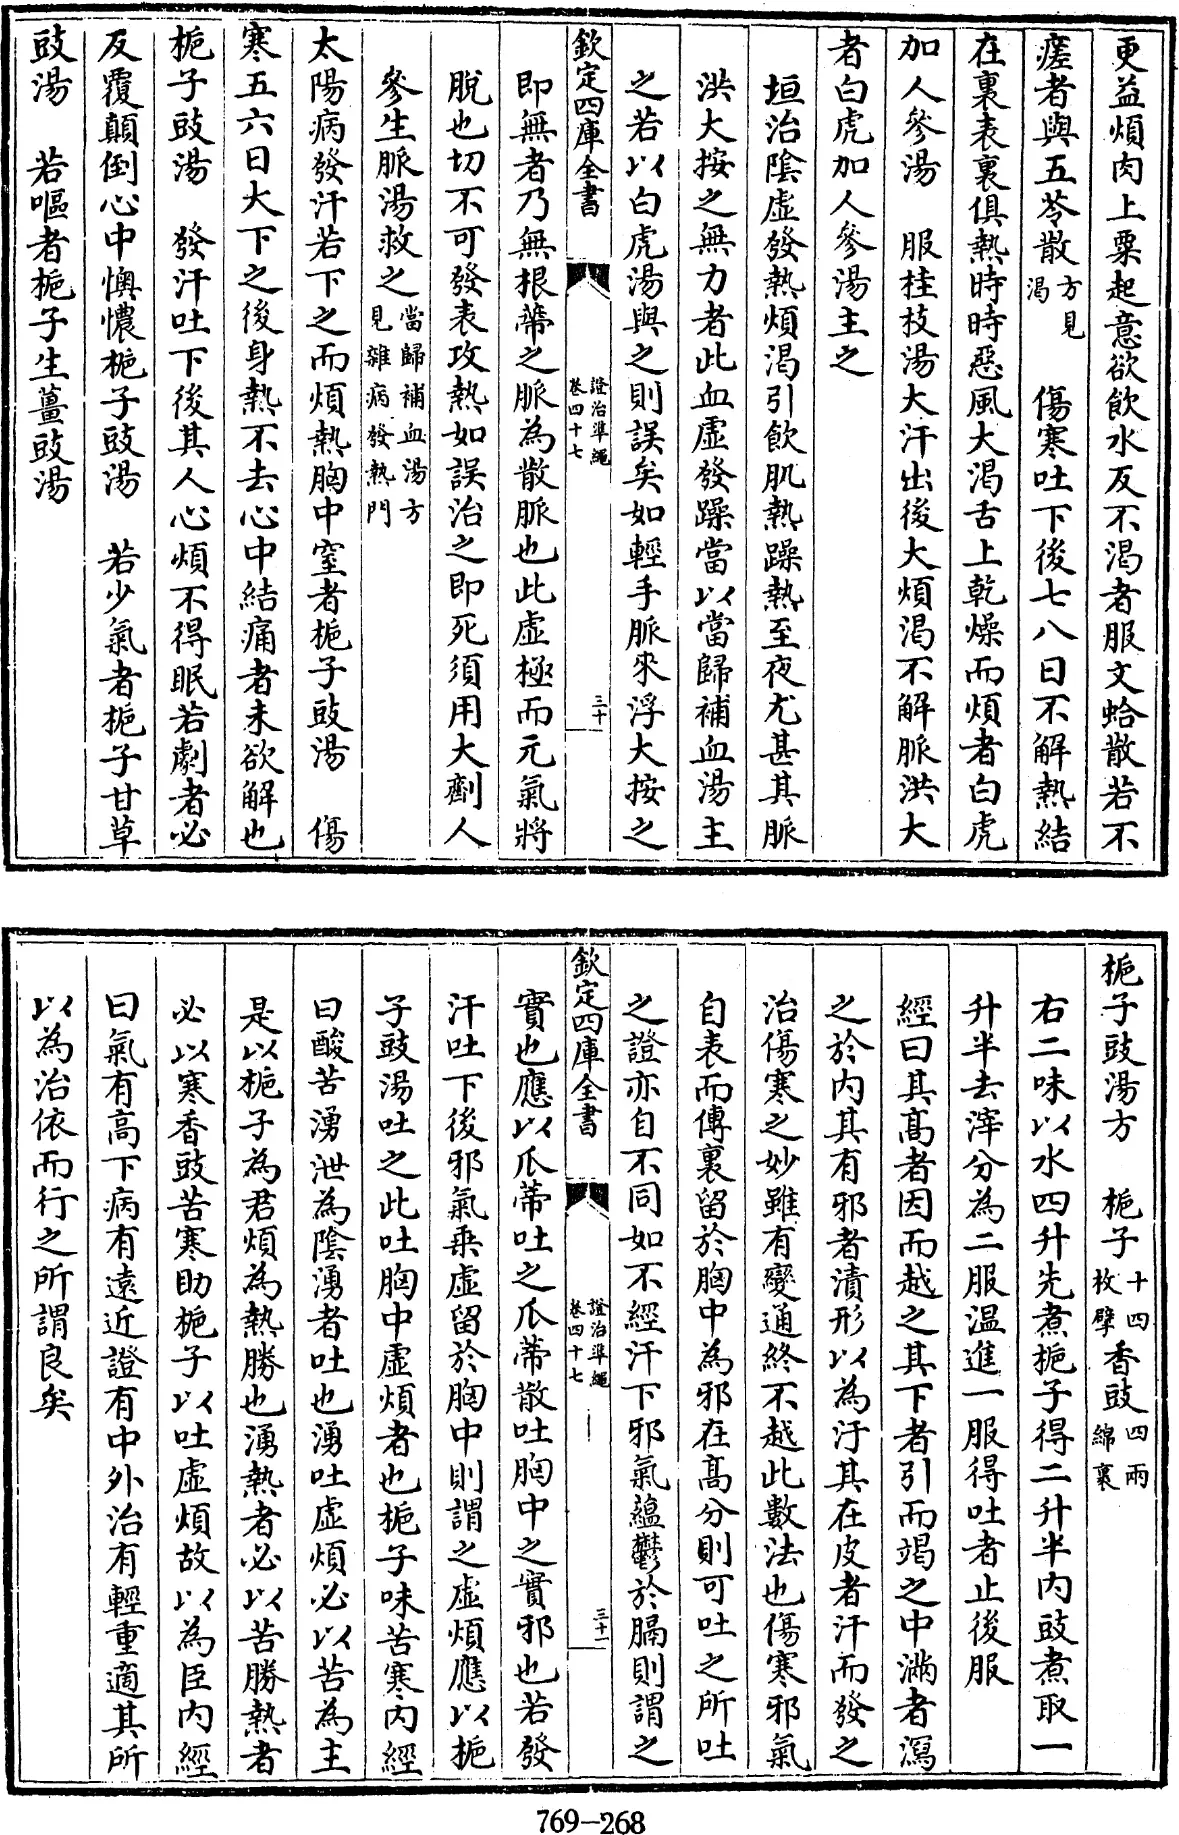 更益煩肉上粟起意欲飲水反不渴者服文蛤散若不
瘥者與五苓散方見渴 傷寒吐下後七八日不解熱結
在裏表裏俱熱時時惡風大渴舌上乾燥而煩者白虎
加人參湯 服桂枝湯大汗出後大煩渴不解脈洪大
者白虎加人參湯主之
垣治陰虛發熱煩渴引飲肌熱躁熱至夜尤甚其脈
洪大按之無力者此血虛發躁當以當歸補血湯主
之若以白虎湯與之則誤矣如輕手脈來浮大按之
欽定四庫全書 證治準繩卷四十七 三十
即無者乃無根蔕之脈為散脈也此虛極而元氣將
脫也切不可發表攻熱如誤治之即死須用大劑人
參生脈湯救之當歸補血湯方見雜病發熱門
太陽病發汗若下之而煩熱胸中窒者梔子豉湯 傷
寒五六日大下之後身熱不去心中結痛者未欲解也
梔子豉湯 發汗吐下後其人心煩不得眠若劇者必
反覆顛倒心中懊憹梔子豉湯 若少氣者梔子甘草
豉湯 若嘔者梔子生薑豉湯
梔子豉湯方 梔子十四枚擘香豉四兩綿裹
右二味以水四升先煮梔子得二升半內豉煮取一
升半去滓分為二服温進一服得吐者止後服
經曰其髙者因而越之其下者引而竭之中滿者瀉
之於内其有邪者漬形以為汗其在皮者汗而發之
治傷寒之妙雖有變通終不越此數法也傷寒邪氣
自表而傳裏留於胸中為邪在髙分則可吐之所吐
之證亦自不同如不經汗下邪氣蘊鬱於膈則謂之
欽定四庫全書 證治準繩卷四十七 三十一
實也應以瓜蒂吐之瓜蒂散吐胸中之實邪也若發
汗吐下後邪氣乗虛留於胸中則謂之虛煩應以梔
子豉湯吐之此吐胸中虛煩者也梔子味苦寒内經
曰酸苦湧泄為陰湧者吐也湧吐虛煩必以苦為主
是以梔子為君煩為熱勝也湧熱者必以苦勝熱者
必以寒香豉苦寒助梔子以吐虛煩故以為臣内經
曰氣有高下病有遠近證有中外治有輕重適其所
以為治依而行之所謂良矣
769-268